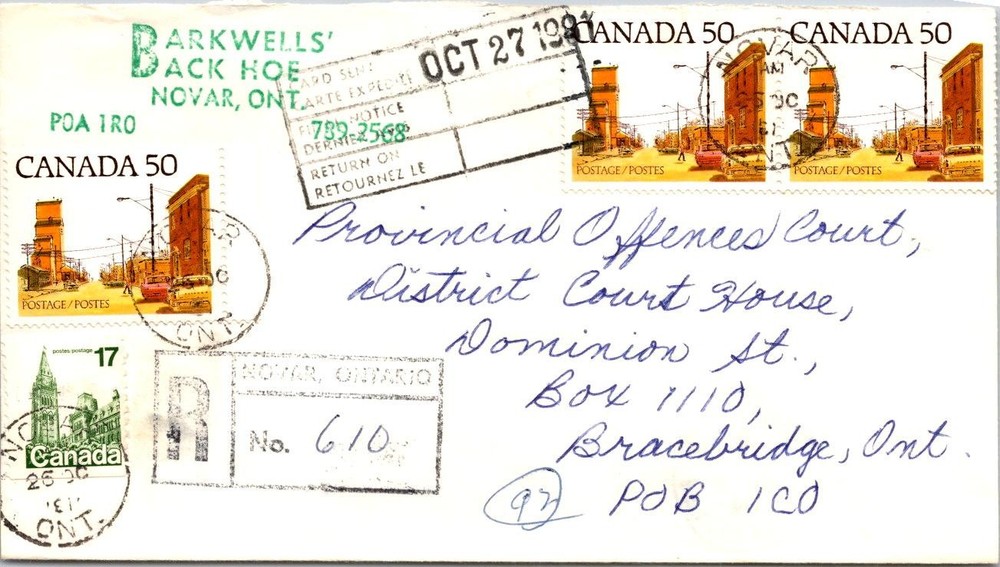 BARKWELLS'
BACK HOE
NOVAR, ONT.
P0A 1R0
789-2568
CARD SENT
CARTE EXPEDIEE
OCT 27 1981
NOTICE
DERNIER
RETURN ON
RETOURNEZ LE
CANADA 50
POSTAGE/POSTES
CANADA 50
POSTAGE/POSTES
NOVAR
AM
OC
81
ONT.
CANADA 50
POSTAGE/POSTES
NOVAR
OC
ONT.
postes postage
17
Canada
NOVAR
26 OC
'81
ONT.
R
NOVAR, ONTARIO
No. 610
Provincial Offences Court,
District Court House,
Dominion St.,
Box 1110,
Bracebridge, Ont.
P0B 1C0